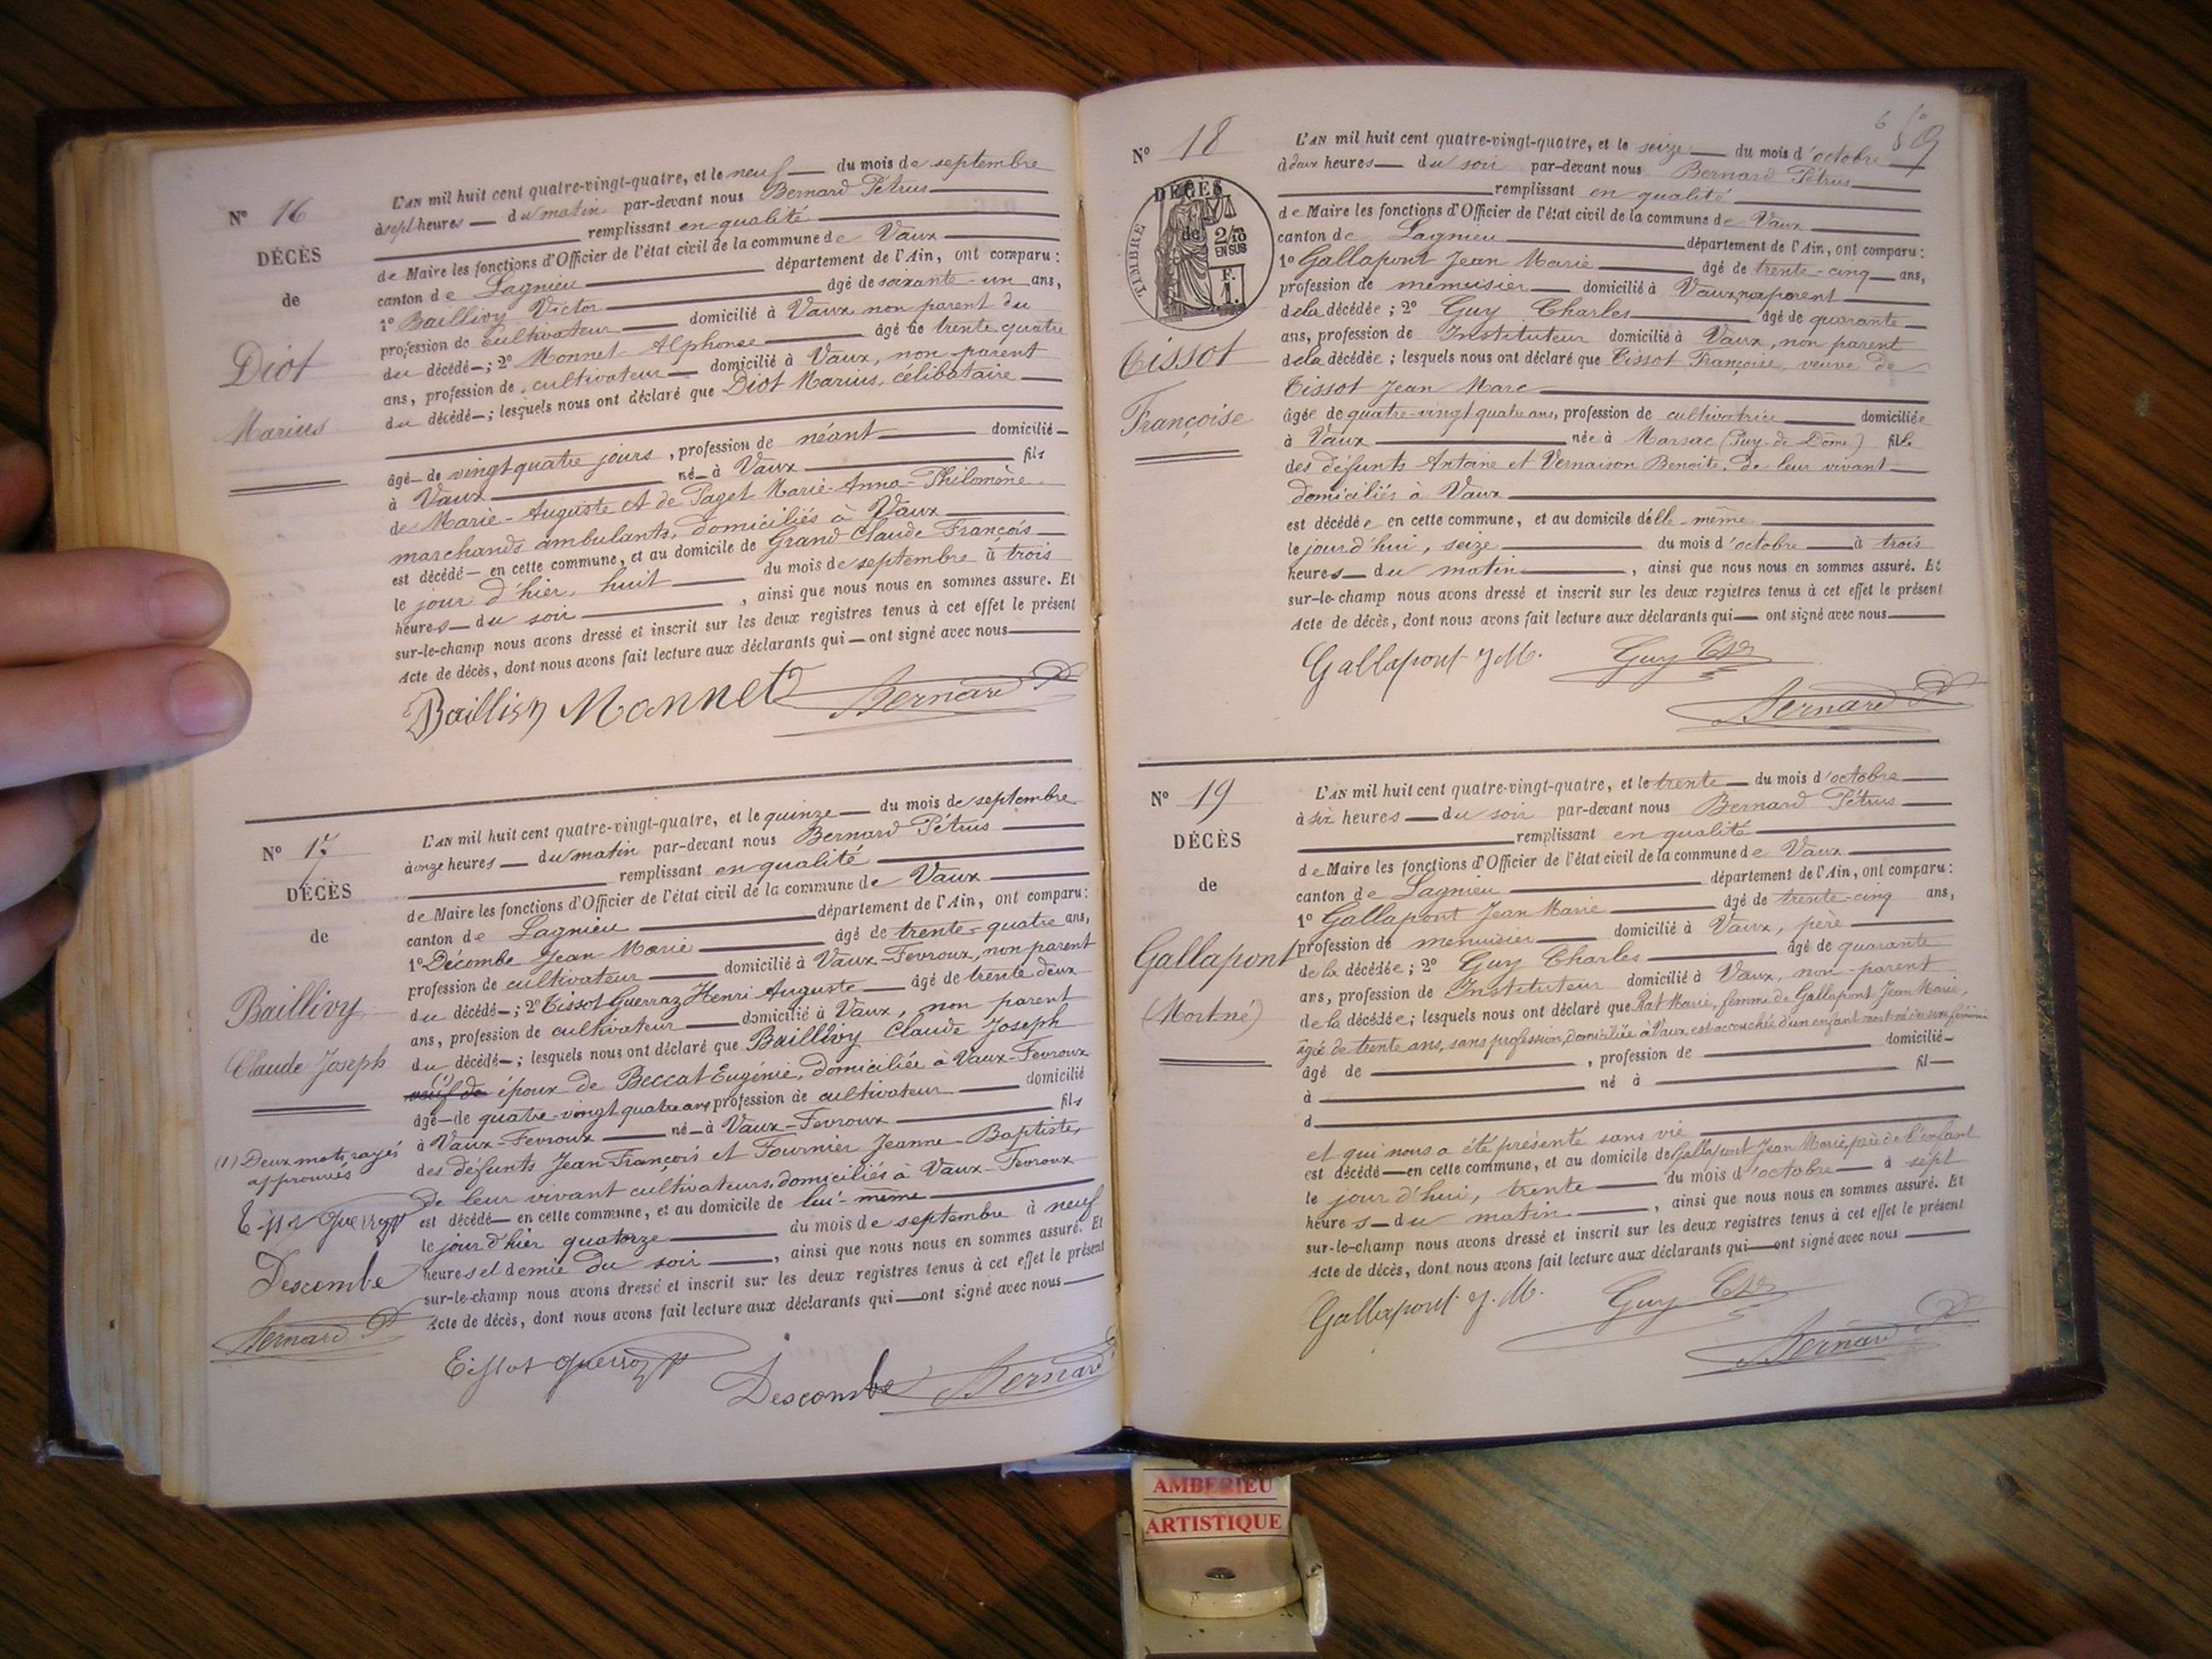 N° 16
DÉCÈS
de
Diot
Marius
L'AN mil huit cent quatre-vingt-quatre, et le neuf du mois de septembre
à sept heures du matin par-devant nous Bernard Pétrus
remplissant en qualité
de Maire les fonctions d'Officier de l'état civil de la commune de Vaux
canton de Lagnieu département de l'Ain, ont comparu:
1° Baillivy Victor âgé de soixante-un ans,
profession de cultivateur domicilié à Vaux non parent du
du décédé; 2° Monnet Alphonse âgé de trente quatre
ans, profession de cultivateur domicilié à Vaux, non parent
du décédé; lesquels nous ont déclaré que Diot Marius, célibataire
âgé de vingt quatre jours, profession de néant domicilié
à Vaux né à Vaux fils
de Marie-Auguste et de Paget Marie-Anna-Philomène
marchands ambulants, domiciliés à Vaux
est décédé en cette commune, et au domicile de Grand Claude François
le jour d'hier, huit du mois de septembre à trois
heures du soir, ainsi que nous nous en sommes assuré. Et
sur-le-champ nous avons dressé et inscrit sur les deux registres tenus à cet effet le présent
Acte de décès, dont nous avons fait lecture aux déclarants qui ont signé avec nous
Baillivy Monnet Bernard P
N° 17
DÉCÈS
de
Baillivy
Claude Joseph
(1) Deux mots rayés
approuvés
Tissot Guerraz
Descombe
Bernard P
L'AN mil huit cent quatre-vingt-quatre, et le quinze du mois de septembre
à onze heures du matin par-devant nous Bernard Pétrus
remplissant en qualité
de Maire les fonctions d'Officier de l'état civil de la commune de Vaux
canton de Lagnieu département de l'Ain, ont comparu:
1° Décombe Jean Marie âgé de trente-quatre ans,
profession de cultivateur domicilié à Vaux-Fevroux, non parent
du décédé; 2° Tissot Guerraz Henri Auguste âgé de trente deux
ans, profession de cultivateur domicilié à Vaux, non parent
du décédé; lesquels nous ont déclaré que Baillivy Claude Joseph
(1) veuf de époux de Beccat Eugénie, domiciliée à Vaux-Fevroux
âgé de quatre-vingt quatre ans, profession de cultivateur domicilié
à Vaux-Fevroux né à Vaux-Fevroux fils
des défunts Jean-François et Fournier Jeanne-Baptiste,
de leur vivant cultivateurs, domiciliés à Vaux-Fevroux
est décédé en cette commune, et au domicile de lui-même
le jour d'hier quatorze du mois de septembre à neuf
heures et demie du soir, ainsi que nous nous en sommes assuré. Et
sur-le-champ nous avons dressé et inscrit sur les deux registres tenus à cet effet le présent
Acte de décès, dont nous avons fait lecture aux déclarants qui ont signé avec nous
Tissot Guerraz Descombe Bernard
N° 18
DÉCÈS
de
TIMBRE
2/10
EN SUS
F.
1.
Tissot
Françoise
L'AN mil huit cent quatre-vingt-quatre, et le seize du mois d'octobre
à deux heures du soir par-devant nous Bernard Pétrus
remplissant en qualité
de Maire les fonctions d'Officier de l'état civil de la commune de Vaux
canton de Lagnieu département de l'Ain, ont comparu:
1° Gallapont Jean Marie âgé de trente-cinq ans,
profession de menuisier domicilié à Vaux, non parent
de la décédée; 2° Guy Charles âgé de quarante
ans, profession de Instituteur domicilié à Vaux, non parent
de la décédée; lesquels nous ont déclaré que Tissot Françoise, veuve de
Tissot Jean Marc
âgée de quatre-vingt quatre ans, profession de cultivatrice domiciliée
à Vaux née à Marsac (Puy-de-Dôme) fille
des défunts Antoine et Vernaison Benoite, de leur vivant
domiciliés à Vaux
est décédée en cette commune, et au domicile d'elle-même
le jour d'hui, seize du mois d'octobre à trois
heures du matin, ainsi que nous nous en sommes assuré. Et
sur-le-champ nous avons dressé et inscrit sur les deux registres tenus à cet effet le présent
Acte de décès, dont nous avons fait lecture aux déclarants qui ont signé avec nous
Gallapont J M. Guy Chs
Bernard P
N° 19
DÉCÈS
de
Gallapont
(Mort-né)
L'AN mil huit cent quatre-vingt-quatre, et le trente du mois d'octobre
à six heures du soir par-devant nous Bernard Pétrus
remplissant en qualité
de Maire les fonctions d'Officier de l'état civil de la commune de Vaux
canton de Lagnieu département de l'Ain, ont comparu:
1° Gallapont Jean Marie âgé de trente-cinq ans,
profession de menuisier domicilié à Vaux, père
de la décédée; 2° Guy Charles âgé de quarante
ans, profession de Instituteur domicilié à Vaux, non-parent
de la décédée; lesquels nous ont déclaré que Rat Marie, femme de Gallapont Jean Marie,
âgée de trente ans, sans profession, domiciliée à Vaux est accouchée d'un enfant mort-né du sexe féminin
âgé de , profession de domicilié
à né à fil
d
et qui nous a été présenté sans vie
est décédé en cette commune, et au domicile de Gallapont Jean Marie, père de l'enfant
le jour d'hui, trente du mois d'octobre à sept
heures du matin, ainsi que nous nous en sommes assuré. Et
sur-le-champ nous avons dressé et inscrit sur les deux registres tenus à cet effet le présent
Acte de décès, dont nous avons fait lecture aux déclarants qui ont signé avec nous
Gallapont J. M. Guy Chs
Bernard P
AMBERIEU
ARTISTIQUE